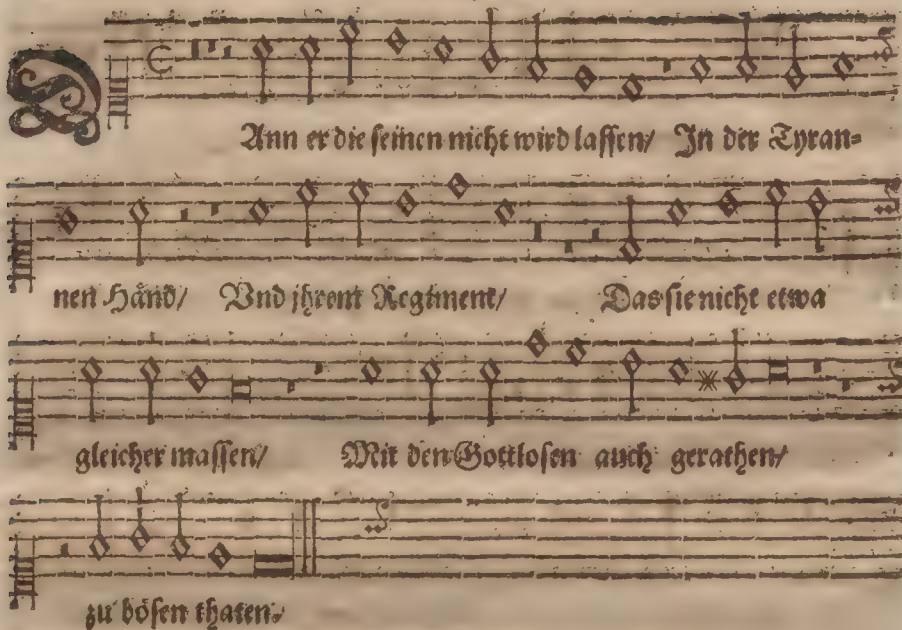 DAnn er die seinen nicht wird lassen/ In der Tyran=
nen Händ/ Vnd jhrem Regiment/ Das sie nicht etwa
gleicher massen/ Mit den Gottlosen auch gerathen/
zu bösen thaten.